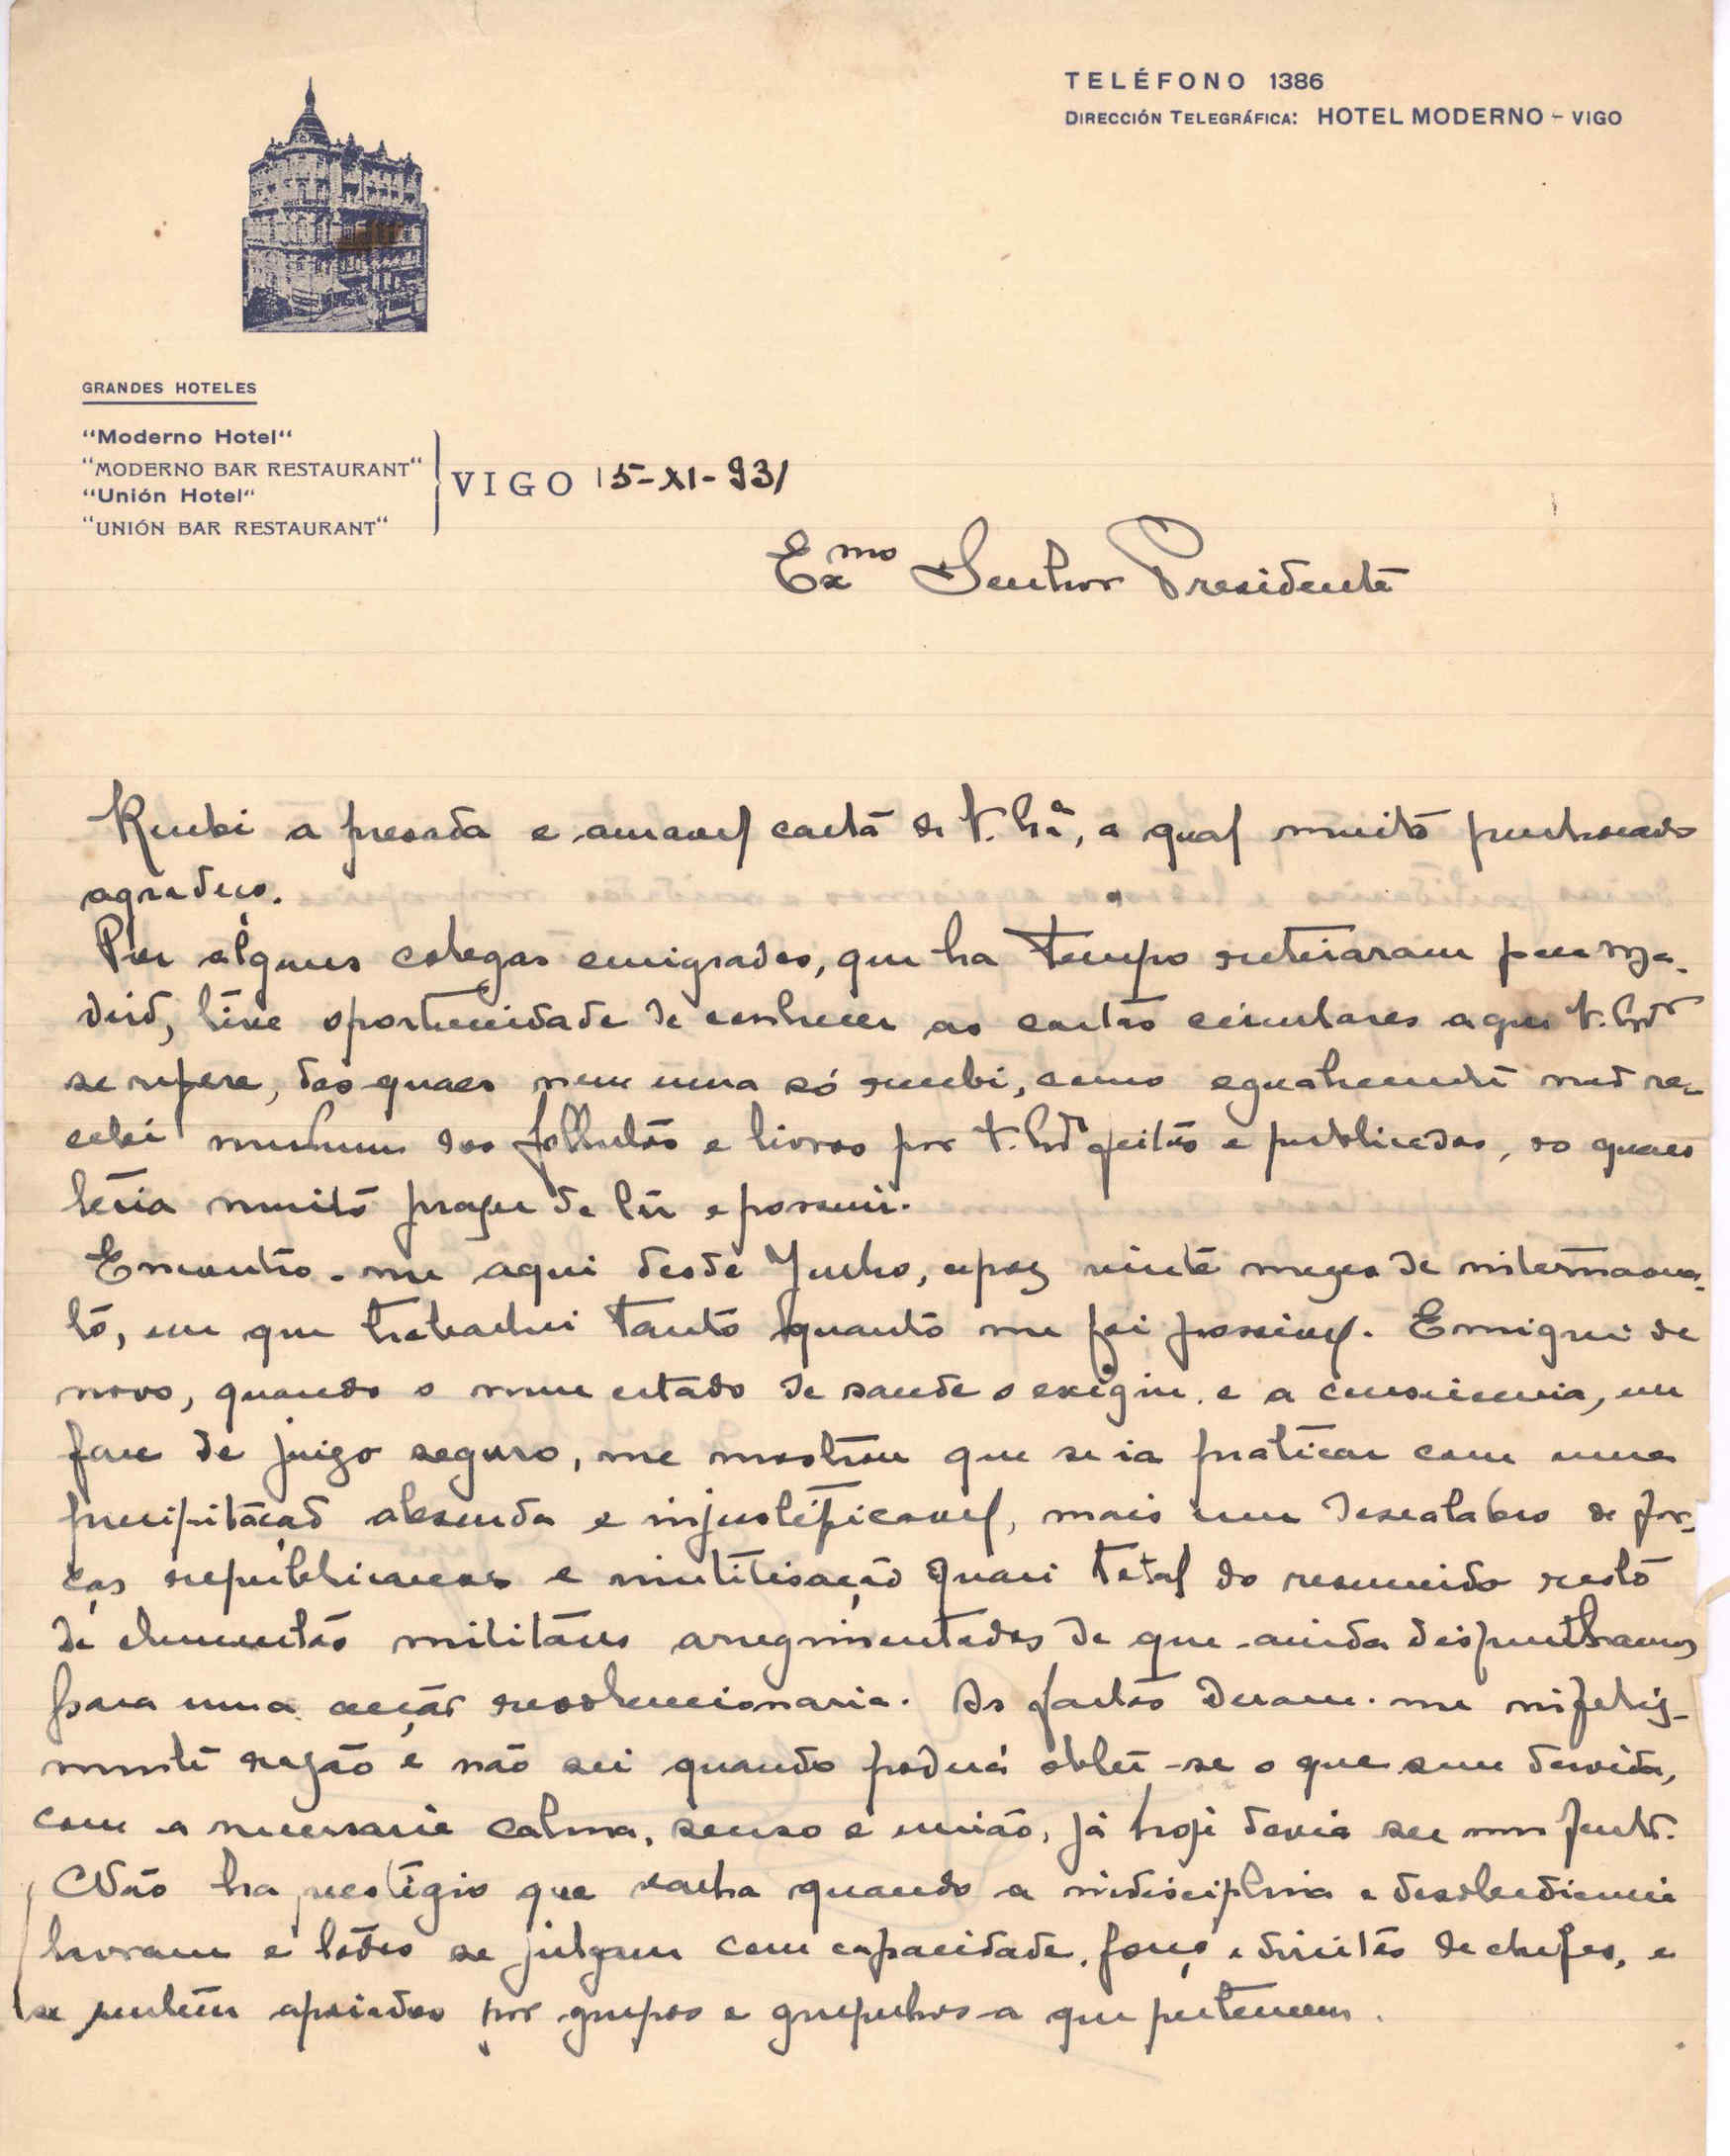 TELÉFONO 1386
DIRECCIÓN TELEGRÁFICA: HOTEL MODERNO - VIGO
GRANDES HOTELES
"Moderno Hotel"
"MODERNO BAR RESTAURANT"
"Unión Hotel"
"UNIÓN BAR RESTAURANT"
VIGO 15-XI-931
Exmo Senhor Presidente
Recebi a presada e amavel carta de V. Exª, a qual muito penhorado
agradeço.
Por alguns colegas emigrados, que ha tempo retiraram para Ma-
drid, tive oportunidade de conhecer as cartas circulares a que V. Exª
se refere, das quaes nem uma só recebi, como egualmente não re-
cebi nenhum dos folhetos e livros por V. Exª feitos e publicados, os quaes
teria muito prazer de lêr e possuir.
Encontro-me aqui desde Junho, apoz vinte mezes de internamen-
to, em que trabalhei tanto quanto me foi possivel. Emigrei de
novo, quando o meu estado de saude o exigiu e a consciencia, em
face de juizo seguro, me mostrou que se ia praticar com uma
precipitação absurda e injustificavel, mais um descalabro de for-
ças republicanas e inutilisação quasi total do resumido resto
de elementos militares arregimentados de que ainda dispunhamos
para uma acção revolucionaria. Os factos deram-me infeliz-
mente razão e não sei quando poderá obter-se o que sem duvida,
com a necessaria calma, senso e união, já hoje devia ser um facto.
Não ha prestigio que valha quando a indisciplina e desobediencia
lavram e todos se julgam com capacidade, força e direitos de chefes, e
se sentem apoiados por grupos e grupelhos a que pertencem.